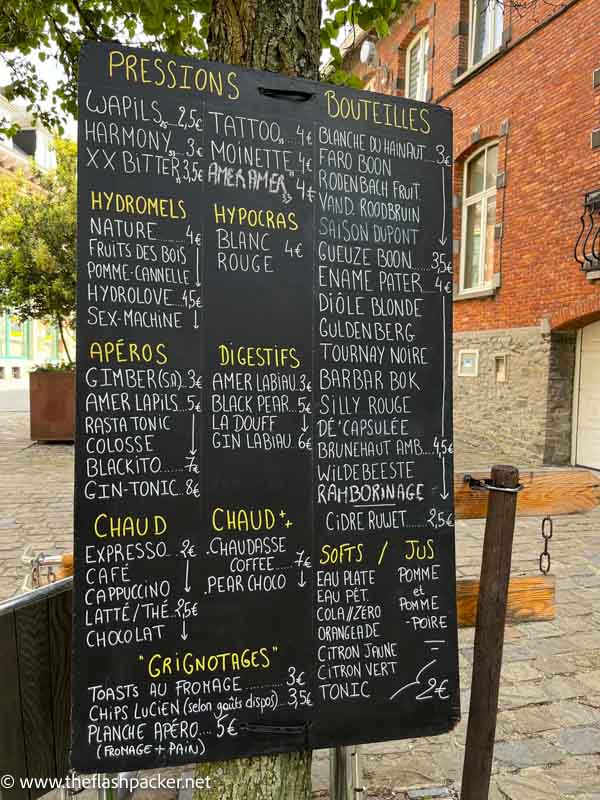 PRESSIONS
WAPILS 2,5€
HARMONY 3€
XX BITTER 3,5€
TATTOO 4€
MOINETTE 4€
AMER AMER 4€
HYDROMELS
NATURE 4€
FRUITS DES BOIS
POMME-CANNELLE
HYDROLOVE 4,5€
SEX-MACHINE
HYPOCRAS
BLANC 4€
ROUGE
APÉROS
GIMBER (SA) 3€
AMER LAPILS 5€
RASTA TONIC
COLOSSE
BLACKITO 7€
GIN-TONIC 8€
DIGESTIFS
AMER LABIAU 3€
BLACK PEAR 5€
LA DOUFF
GIN LABIAU 6€
CHAUD
EXPRESSO 2€
CAFÉ
CAPPUCCINO
LATTÉ/THÉ 2,5€
CHOCOLAT
CHAUD++
CHAUDASSE
COFFEE 7€
PEAR CHOCO
"GRIGNOTAGES"
TOASTS AU FROMAGE 3€
CHIPS LUCIEN (selon goûts dispos) 3,5€
PLANCHE APÉRO 5€
(FROMAGE + PAIN)
BOUTEILLES
BLANCHE DU HAINAUT 3€
FARO BOON
RODENBACH FRUIT.
VAND. ROODBRUIN
SAISON DUPONT
GUEUZE BOON 3,5€
ENAME PATER 4€
DIÔLE BLONDE
GULDENBERG
TOURNAY NOIRE
BARBAR BOK
SILLY ROUGE
DÉ'CAPSULÉE
BRUNEHAUT AMB. 4,5€
WILDEBEESTE
RAMBORINAGE
CIDRE RUWET 2,5€
SOFTS / JUS
EAU PLATE
EAU PÉT.
COLA//ZÉRO
ORANGEADE
CITRON JAUNE
CITRON VERT
TONIC
POMME
et
POMME
-POIRE
2€
© www.theflashpacker.net